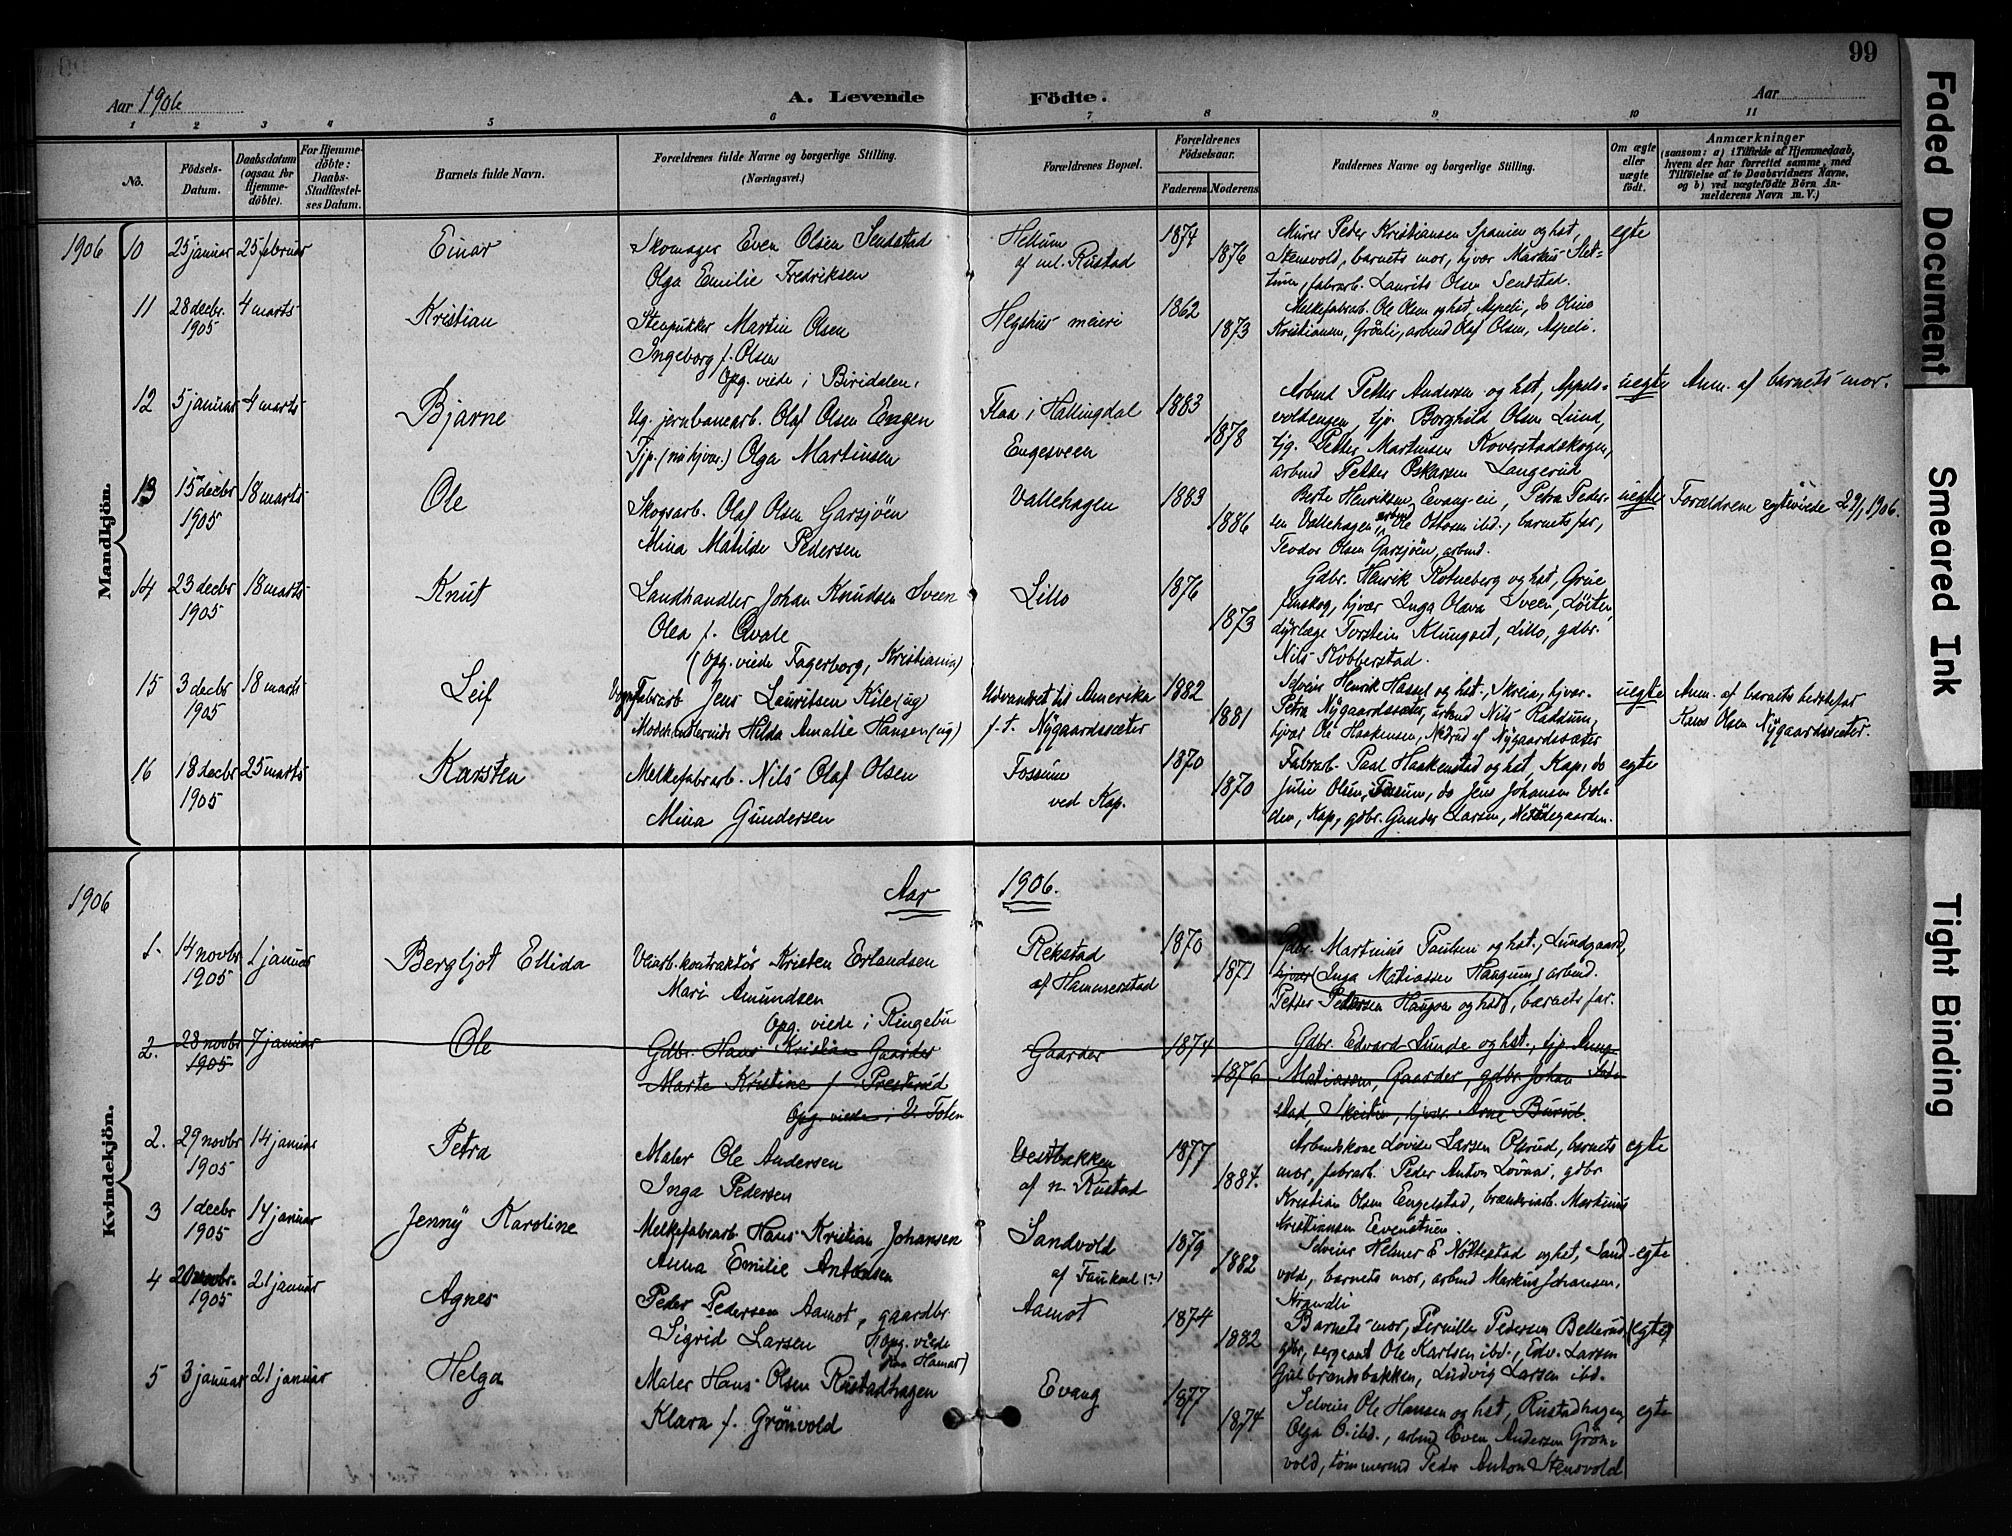 99
Aar 1906
A. Levende Födte.
Aar
1 2 3 4 5 6 7 8 9 10 11
No.
Födsels-Datum.
Daabsdatum (ogsaa for Hjemme-döbte).
For Hjemme-döbte: Daabs-Stadfæstel-ses Datum.
Barnets fulde Navn.
Forældrenes fulde Navne og borgerlige Stilling. (Næringsvei.)
Forældrenes Bopæl.
Forældrenes Födselsaar.
Faderens Moderens
Faddernes Navne og borgerlige Stilling.
Om ægte eller uægte födt.
Anmærkninger
(saasom: a) i Tilfælde af Hjemmedaab, hvem der har forrettet samme, med Tilföielse af to Daabsvidners Navne, og b) ved uægtefödte Börn Anmelderens Navn m. V.)
Mandkjön.
1906 10 25 januar 25 februar Einar
Skomager Even Olsen Sendstad
Olga Emilie Fredriksen
Hellum
af ml. Rustad
1874 1876
Murer Peder Kristiansen Spanien og hst,
Stensvold, barnets mor, hjvær Markus Slet-
tum, fabrarb. Laurits Olsen Sendstad.
egte
11 28 decbr. 1905 4 marts Kristian
Stenpukker Martin Olsen
Ingeborg f. Olsen
Opg. viede i Biridalen.
Hegshus meieri
1862 1873
Melkefabrarb. Ole Olsen og hst, Aspeli, do Oline
Kristiansen, Gröali, arbmd Olaf Olsen, Aspeli.
12 5 januar 4 marts Bjarne
Ug. jernbanearb. Olaf Olsen Engen
Tjp. (nu hjvær.) Olga Martinsen
Flaa i Hallingdal
Engesveen
1883 1878
Arbmd Petter Andersen og hst,
voldengen, tjp. Borghild Olsen Lund,
tjg. Petter Martinsen Koverstadskogen,
arbmd Petter Oskarsen Langerud
uegte
Anm. af barnets mor.
13 15 decbr 1905 18 marts Ole
Skogsarb. Olaf Olsen Garsjöen
Mina Matilde Pedersen
Vallehagen
1883 1886
Berte Henriksen, Evang-eie, Petra Peder-
sen Vallehagen, arbmd Ole Ottosen ibd., barnets far,
Teodor Olsen Garsjöen, arbmd.
uegte
Forældrene egteviede 29/1 1906.
14 23 decbr 1905 18 marts Knut
Landhandler Johan Knudsen Sveen
Olea f. Qvale
(Opg. viede Fagerborg, Kristiania)
Lillo
1876 1873
Gdbr. Henrik Rotneberg og hst, Grue
finskog, hjvær Inga Olava Sveen, Löiten,
dyrlæge Torstein Klungset, Lillo, gdbr.
Nils Kobberstad.
15 3 decbr 1905 18 marts Leif
Vognfabrarb Jens Lauritsen Kile (ug)
Modehandlerinde Hilda Amalie Hansen (ug)
Udvandret til Amerika
f. t. Nygaardssæter
1882 1881
Selveier Henrik Hassel og hst., Skreia, hjvær.
Petra Nygaardssæter, arbmd Nils Raddum,
hjvær Ole Haakensen, Nedrud af Nygaardssæter
uegte
Anm. af barnets bedstefar
Hans Olsen Nygaardssæter.
16 18 decbr 1905 25 marts Karsten
Melkefabrarb. Nils Olaf Olsen
Mina Gundersen
Fossum
ved Kap.
1870 1870
Fabrarb. Paal Haakenstad og hst, Kap, do
Julie Olsen, Fossum, do Jens Johansen Vol-
den, Kap, gdbr. Gunder Larsen,
egte
Kvindekjön.
1906 Aar 1906.
1. 14 novbr 1905 1 januar Bergljot Ellida
Veiarb.kontraktör Kristen Erlandsen
Mari Amundsen
Opg. viede i Ringebu
Rekstad
af Hammerstad
1870 1871
Gdbr. Martinus Paulsen og hst., Lundgaard,
hjvær Inga Matiassen Haugum, arbmd.
Petter Pedersen Haugen og hst, barnets far.
2. 28 novbr 1905 7 januar Ole
Gdbr. Hans Kristian Gaarder
Marte Kristine f. Presterud
Opg viede i V. Toten
Gaarder
1874 1876
Gdbr. Edvard Lunde og hst., tjp. Anna
Matiassen, Gaarder, gdbr. Johan
stad, hjvær. Arne Burul.
2. 29 novbr 1905 14 januar Petra
Maler Ole Andersen
Inga Pedersen
Vestbakken
af n. Rustad
1877 1884.
Arbmdskone Lovise Larsen Olsrud, barnets
mor, fabrarb. Peder Anton Lönaas, gdbr
Kristian Olsen Engelstad, brænderiarb. Martinus
Kristiansen Evenstuen.
egte
3 1 decbr 1905 14 januar Jenny Karoline
Melkefabrarb Hans Kristian Johansen
Anna Emilie Antonsen
Sandvold
af Faukal (n)
1879 1882
Selveier Helmer E Nöttestad og hst, Sand-
vold, barnets mor, arbmd Markus Johansen,
Strandli
egte
4 20 novbr. 1905 21 januar Agnes
Peder Pedersen Aamot, gaardbr.
Sigrid Larsen (Opg. viede
paa Hamar)
Aamot
1874 1882
Barnets mor, Pernille Pedersen Bellerud
gdbr, sergeant Ole Karlsen ibd., Edv. Larsen
Gulbrandsbakken, Ludvig Larsen ibd.
(egte)
5 3 januar 21 januar Helga
Maler Hans Olsen Rustadhagen
Klara f. Grönvold
Evang
1877 1874
Selveier Ole Hansen og hst, Rustadhagen,
Olga O. ibd., arbmd Even Andersen Grön-
vold, tömmermd Peder Anton Stensvold
egte
Faded Document
Smeared Ink
Tight Binding